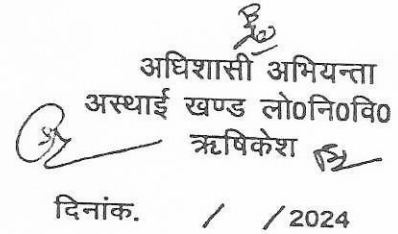 अधिशासी अभियन्ता
अस्थाई खण्ड लो०नि०वि०
ऋषिकेश
दिनांक. / /2024